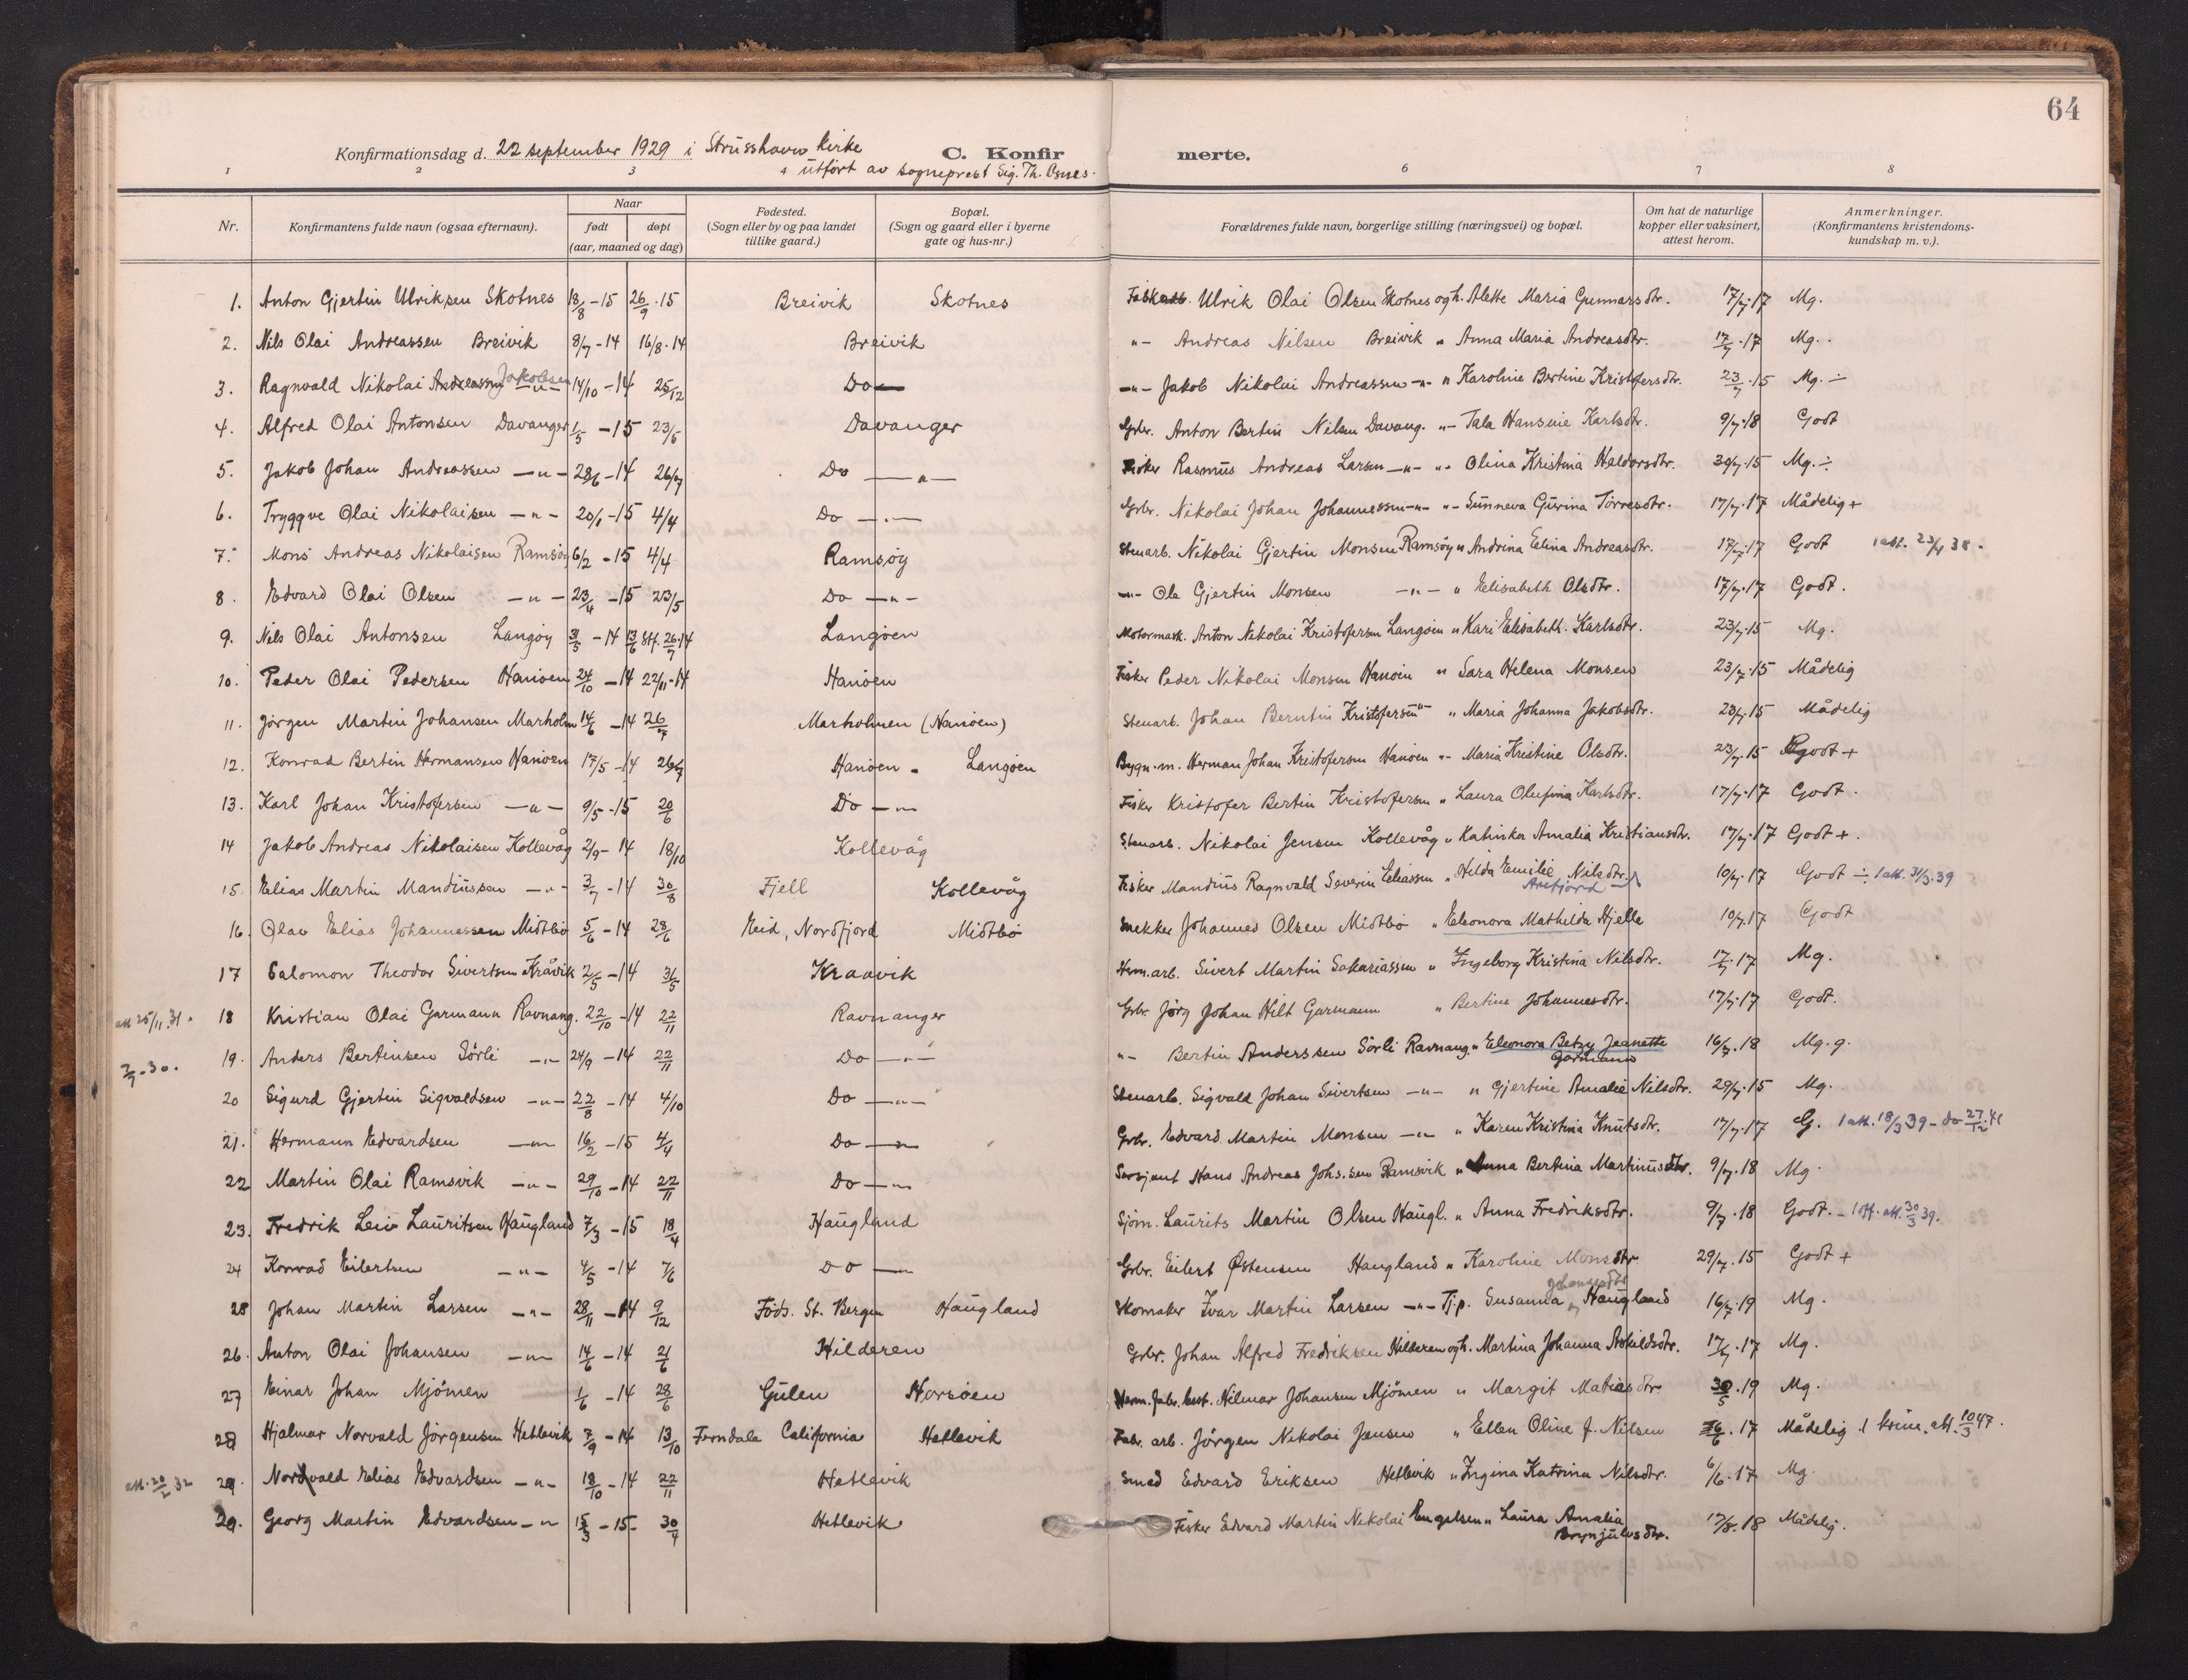 64
Konfirmationsdag d. 22 september 1929 i Strusshavn Kirke
C. Konfir merte.
utført av sogneprest Sig. Th. Osnes.
1 2 3 4 6 7 8
Nr. Konfirmantens fulde navn (ogsaa efternavn). Naar født døpt (aar, maaned og dag) Fødested. (Sogn eller by og paa landet tillike gaard.) Bopæl. (Sogn og gaard eller i byerne gate og hus-nr.) Forældrenes fulde navn, borgerlige stilling (næringsvei) og bopæl. Om hat de naturlige kopper eller vaksinert, attest herom. Anmerkninger. (Konfirmantens kristendoms-kundskap m. v.).
1. Anton Gjertin Ulriksen Skotnes 18/8 -15 26/9 . 15 Breivik Skotnes Ulrik Olai Olsen Skotnes og h. Alette Maria Gunnarsdtr. 17/7 . 17 Mg.
2. Nils Olai Andreassen Breivik 8/7 - 14 16/8 . 14 Breivik "- Andreas Nilsen Breivik " Anna Maria Andreasdtr. 17/7 . 17 Mg.
3. Ragnvald Nikolai Andreassen Jakobsen -"- 14/10 - 14 25/12 Do -"- Jakob Nikolai Andreassen -"- " Karoline Bertine Kristofersdtr. 23/7 . 15 Mg. ÷
4. Alfred Olai Antonsen Davanger 1/5 - 15 23/5 Davanger Grbr. Anton Bertin Nilsen Davang. "- Tala Hansine Karlsdtr. 9/7 . 18 Godt
5. Jakob Johan Andreassen -"- 28/6 - 14 26/7 Do -"- Fisker Rasmus Andreas Larsen -"- "- Olina Kristina Haldorsdtr. 30/7 . 15 Mg. ÷
6. Tryggve Olai Nikolaisen -"- 20/1 - 15 4/4 Do -"- Grbr. Nikolai Johan Johannessen -"- "- Sunneva Gurina Torresdtr. 17/7 . 17 Mådelig +
7. Mons Andreas Nikolaisen Ramsøy 6/2 - 15 4/4 Ramsøy Stenarb. Nikolai Gjertin Monsen Ramsøy " Andrina Elina Andreasdtr. 17/7 . 17 Godt 1 att. 23/4 38.
8. Edvard Olai Olsen -"- 23/4 - 15 23/5 Do -"- -"- Ole Gjertin Monsen -"- " Elisabeth Olsdtr. 17/7 . 17 Godt.
9. Nils Olai Antonsen Langøy 31/5 - 14 13/6 Stf. 26/7 . 14 Langøen Motormask. Anton Nikolai Kristofersen Langøen " Kari Elisabeth. Karlsdtr. 23/7 . 15 Mg.
10. Peder Olai Pedersen Hanøen 24/10 - 14 22/11 - 14 Hanøen Fisker Peder Nikolai Monsen Hanøen " Sara Helena Monsen 23/7 . 15 Mådelig
11. Jørgen Martin Johansen Marholm 14/6 - 14 26/7 Marholmen (Hanøen) Stenarb. Johan Berntin Kristofersen -"- " Maria Johanna Jakobsdtr. 23/7 . 15 Mådelig
12. Konrad Bertin Hermansen Hanøen 17/5 - 14 26/7 Hanøen - Langøen Bygn.m. Herman Johan Kristofersen Hanøen "- Maria Kristine Olsdtr. 23/7 . 15 godt +
13. Karl Johan Kristofersen -"- 9/5 - 15 20/6 Do -"- Fisker Kristofer Bertin Kristofersen " Laura Olufina Karlsdtr. 17/7 . 17 Godt.
14 Jakob Andreas Nikolaisen Kollevåg 2/9 - 14 18/10 Kollevåg Stenarb. Nikolai Jensen Kollevåg " Katinka Amalia Kristiansdtr. 17/7 . 17 Godt +.
15. Elias Martin Mandiussen -"- 3/7 - 14 30/8 Fjell Kollevåg Fisker Mandius Ragnvald Severin Eliassen " Hilda Emilie Nilsdtr. 10/7 . 17 Godt ÷ 1 att. 31/3 . 39
Arefjord
16. Olav Elias Johannessen Midtbø 5/6 - 14 28/6 Eid, Nordfjord Midtbø Snekker Johannes Olsen Midtbø " Eleonora Mathilda Hjelle 10/7 . 17 Godt
17 Salomon Theodor Sivertsen Kråvik 2/5 - 14 31/5 Kraavik Herm.arb. Sivert Martin Sakariassen " Ingeborg Kristina Nilsdtr. 17/7 . 17 Mg.
att 25/11 31. 18 Kristian Olai Garmann Ravnang. 22/10 - 14 22/11 Ravnanger Grbr. Jørg Johan Hilt Garmann " Bertine Johannesdtr. 17/7 . 17 Godt.
7/9 - 30. 19. Anders Bertinsen Sørli -"- 24/9 - 14 22/11 Do -"- "- Bertin Anderssen Sørli Ravnang. " Eleonora Betzy Jeanette Garmann 16/7 . 18 Mg. g.
20 Sigurd Gjertin Sigvaldsen -"- 22/8 - 14 4/10 Do -"- Stenarb. Sigvald Johan Sivertsen -"- " Gjertine Amalie Nilsdtr. 29/7 . 15 Mg.
21. Hermann Edvardsen -"- 16/2 - 15 4/4 Do -"- Grbr. Edvard Martin Monsen -"- " Karen Kristina Knutsdtr. 17/7 . 17 G. 1 att. 18/3 39 - do 27/12 41
22 Martin Olai Ramsvik -"- 29/10 - 14 22/11 Do -"- Sersjant Hans Andreas Johs.sen Ramsvik " Anna Bertina Martinusdtr. 9/7 . 18 Mg.
23. Fredrik Leiv Lauritsen Haugland 7/3 - 15 18/4 Haugland Sjøm. Laurits Martin Olsen Haugl. " Anna Fredriksdtr. 9/7 . 18 Godt. - 1 off. att. 30/3 39.
24 Konrad Eilertsen -"- 4/5 - 14 7/6 Do -"- Grbr. Eilert Østensen Haugland " Karoline Monsdtr 29/7 . 15 Godt +
28 Johan Martin Larsen -"- 28/11 - 14 9/12 Føds. St. Bergen Haugland Skomaker Ivar Martin Larsen -"- Tj.p. Susanna Johannesdtr Haugland 16/7 . 19 Mg.
26. Anton Olai Johansen -"- 14/6 - 14 21/6 Hilderen Grbr. Johan Alfred Fredriksen Hilderen og h. Martina Johanna Askildsdtr. 17/7 . 17 Mg.
27 Einar Johan Mjømen 1/6 - 14 28/6 Gulen Horsøen Herm.fabr.best. Hilmar Johansen Mjømen " Margit Matiasdtr 30/5 . 19 Mg.
28 Hjalmar Norvald Jörgensen Hetlevik 7/9 - 14 13/10 Ferndale California Hetlevik Fabr. arb. Jörgen Nikolai Jensen " Ellen Oline J. Nilsen 6 . 17 Mådelig 1 att. 10/3 47.
att. 20/2 32 29. Nordvald Elias Edvardsen -"- 18/10 - 14 22/11 Hetlevik Smed Edvard Eriksen Hetlevik " Ingina Katrina Nilsdtr. 6/6 . 17 Mg.
29. Georg Martin Edvardsen -"- 15/3 - 15 - 30/4 Hetlevik Fisker Edvard Martin Nikolai Engelsen " Laura Amalia Brynjulvsdtr. 17/8 . 18 Mådelig.